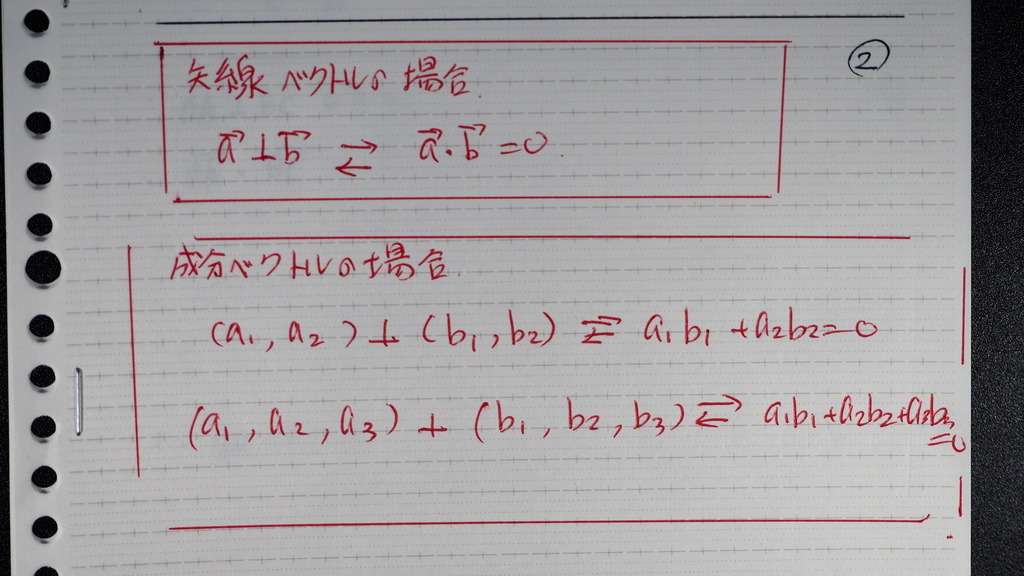 ②
矢線ベクトルの場合.
a⃗⊥b⃗ ⇄ a⃗・b⃗=0.
成分ベクトルの場合.
(a₁, a₂)⊥(b₁, b₂) ⇄ a₁b₁+a₂b₂=0
(a₁, a₂, a₃)⊥(b₁, b₂, b₃) ⇄ a₁b₁+a₂b₂+a₃b₃
=0